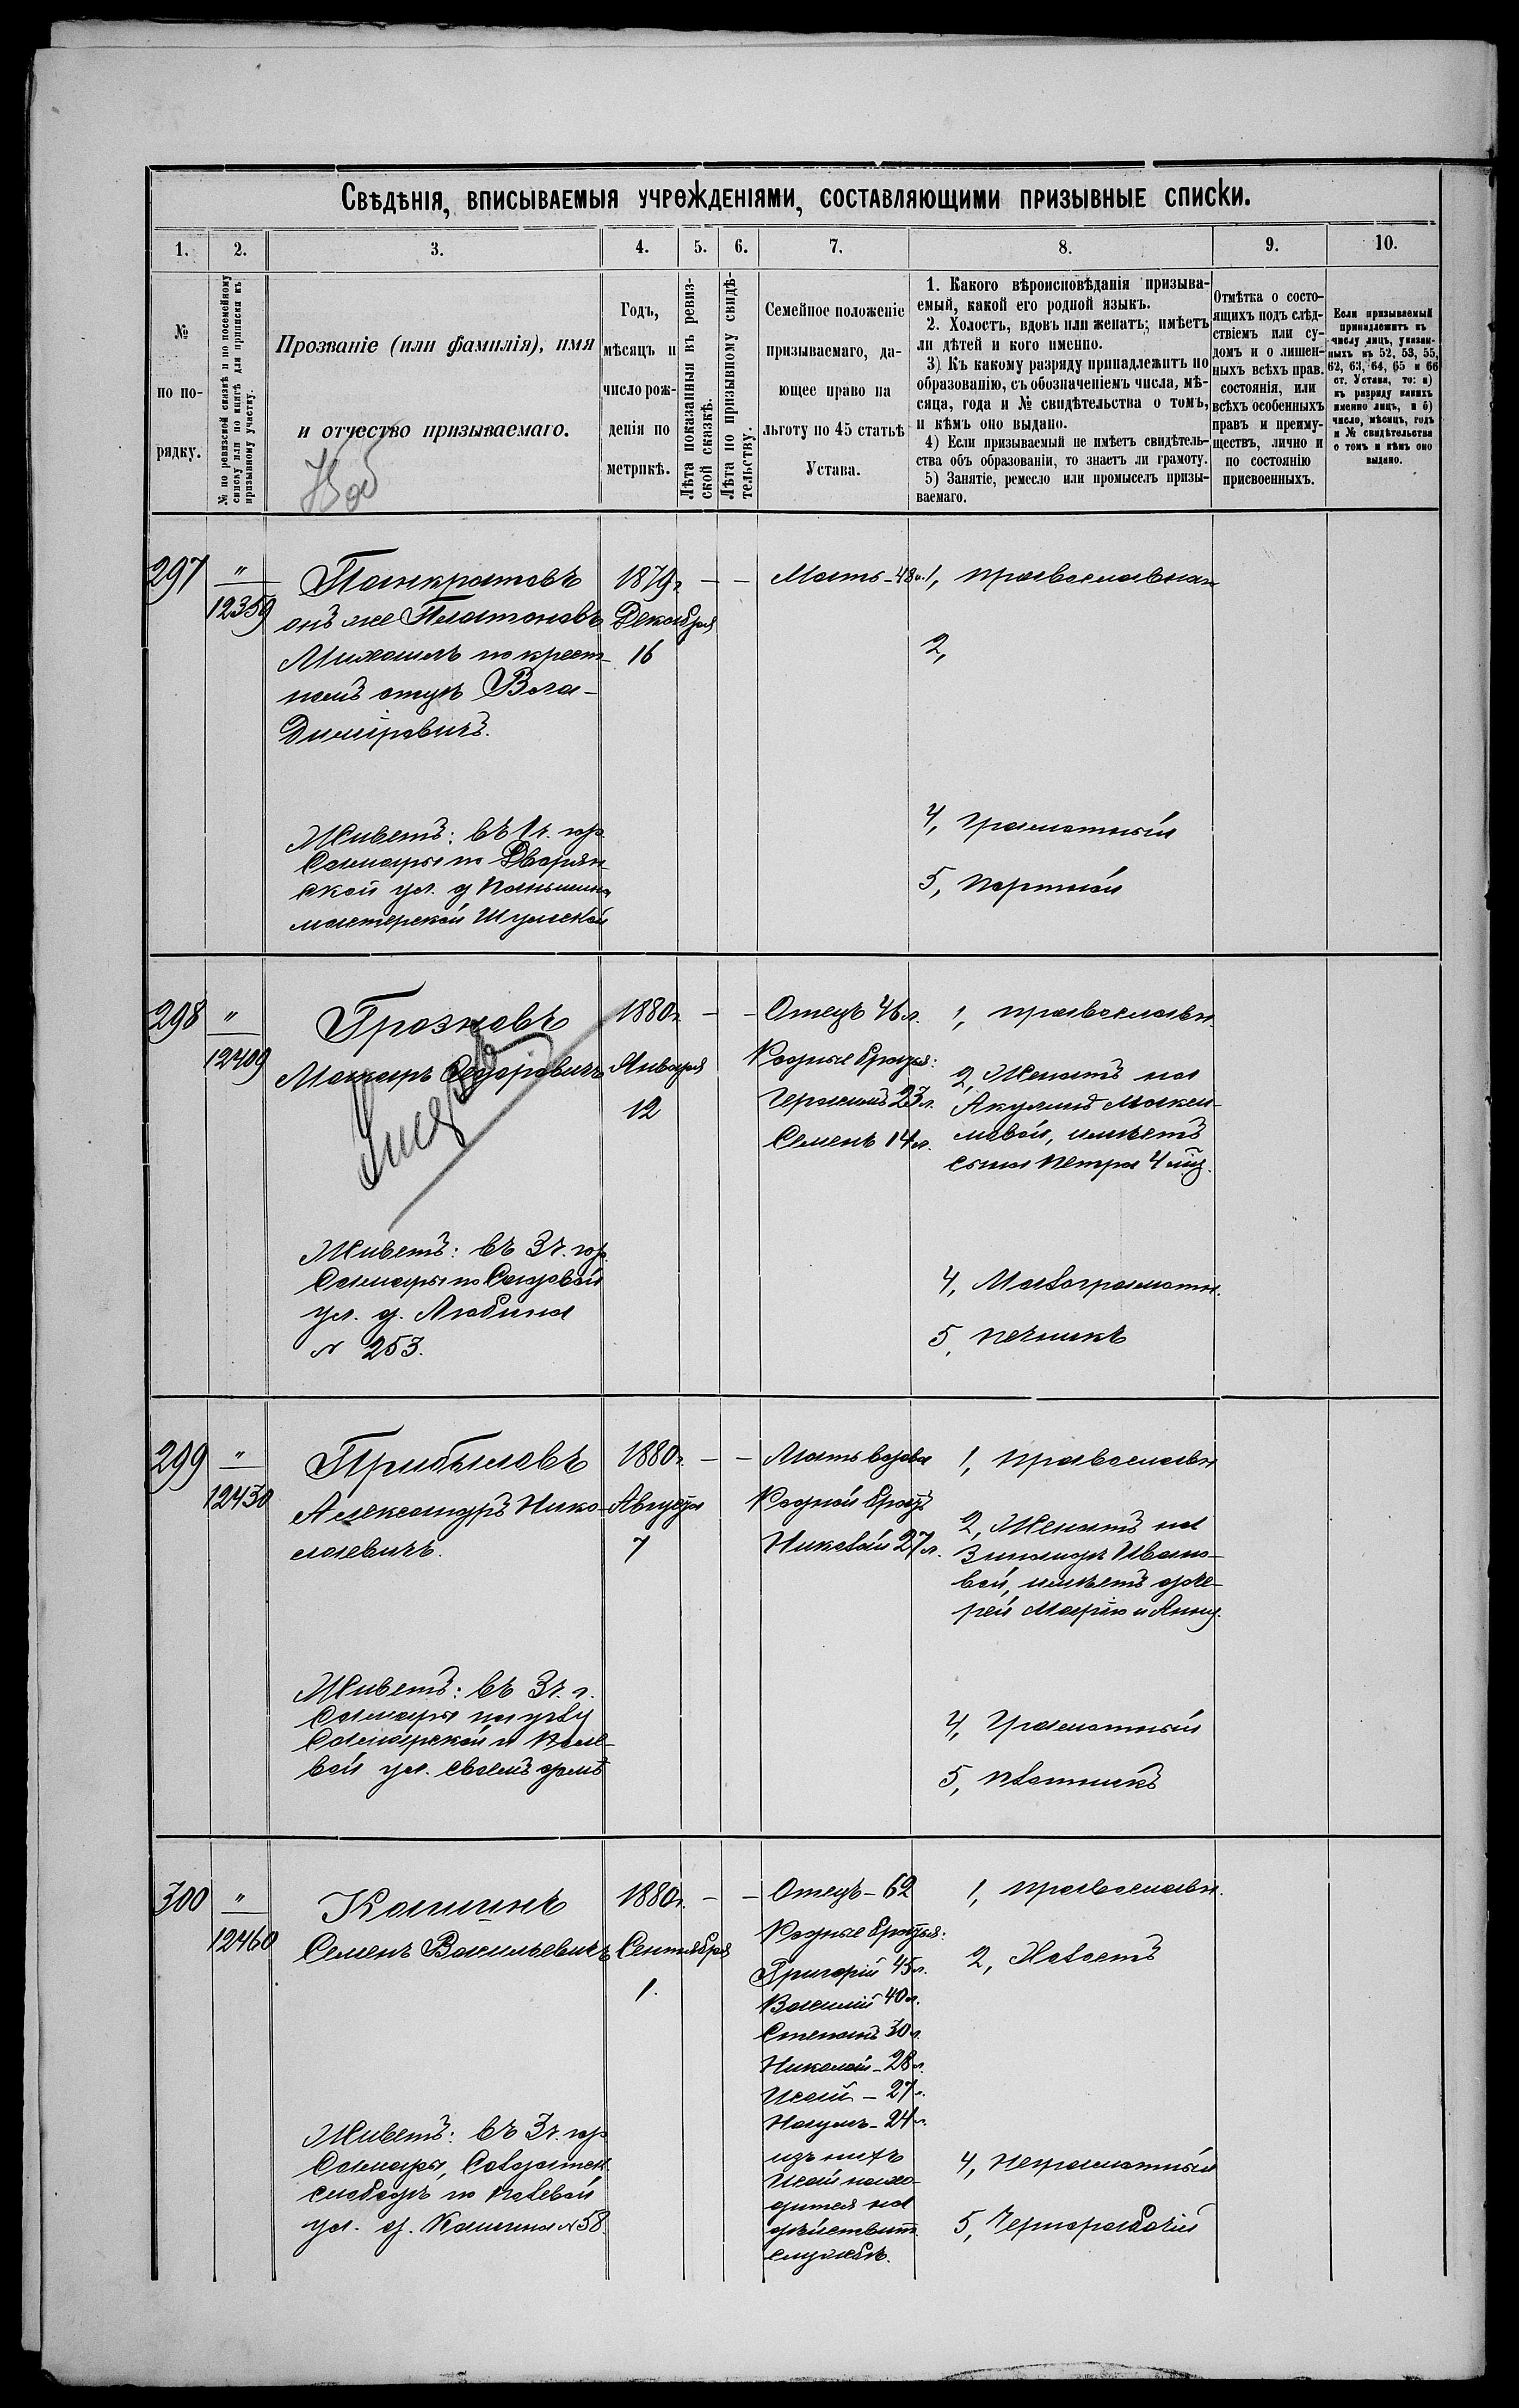 Свѣдѣнія, вписываемыя учрежденіями, составляющими призывные списки.
1. 2. 3. 4. 5. 6. 7. 8. 9. 10.
№ по порядку.
№ по ревизской сказкѣ и по посемейному
списку или по книгѣ для приписки къ
призывному участку.
Прозваніе (или фамилія), имя
и отчество призываемаго.
Годъ,
мѣсяцъ и
число рож-
денія по
метрикѣ.
Лѣта показанныя въ ревиз-
ской сказкѣ.
Лѣта по призывному свидѣ-
тельству.
Семейное положеніе
призываемаго, да-
ющее право на
льготу по 45 статьѣ
Устава.
1. Какого вѣроисповѣданія призыва-
емый, какой его родной языкъ.
2. Холостъ, вдовъ или женатъ; имѣетъ
ли дѣтей и кого именно.
3) Къ какому разряду принадлежитъ по
образованію, съ обозначеніемъ числа, мѣ-
сяца, года и № свидѣтельства о томъ,
и кѣмъ оно выдано.
4) Если призываемый не имѣетъ свидѣтель-
ства объ образованіи, то знаетъ ли грамоту.
5) Занятіе, ремесло или промыселъ призы-
ваемаго.
Отмѣтка о состо-
ящихъ подъ слѣд-
ствіемъ или су-
домъ и о лишен-
ныхъ всѣхъ прав.
состоянія, или
всѣхъ особенныхъ
правъ и преиму-
ществъ, лично и
по состоянію
присвоенныхъ.
Если призываемый
принадлежитъ къ
числу лицъ, указан-
ныхъ въ 52, 53, 55,
62, 63, 64, 65 и 66
ст. Устава, то: а)
къ разряду какихъ
именно лицъ, и б)
число, мѣсяцъ, годъ
и № свидѣтельства
о томъ и кѣмъ оно
выдано.
297
"
12359
Панкратовъ
онъ же Платоновъ
Михаилъ по крест-
номъ отцѣ Вла-
диміровичъ.
Живетъ: въ 1 ч. гор.
Самары по Дворян-
ской ул. д Паньшина
мастерской
1879 г.
Декабря
16
— —
Мать - 48 л.
1, православнаг
2,
4, Грамотный
5, портной
298
"
12409
Грозновъ
Ѳедоровичъ
Живетъ: въ 3 ч. гор.
Самары по Садовой
ул. д. Любина
№ 253.
1880 г.
Января
12
— —
Отецъ 46 л.
Родные братья:
Герасимъ 23 л.
Семенъ 14 л.
1, православн.
2, Женатъ на
Акулинѣ Макси-
мовой, имѣетъ
сына Петра 4 мѣс.
4, Малограмотн.
5, печникъ
299
"
12430
Прибыловъ
Александръ Нико-
лаевичъ.
Живетъ: въ 3 ч. г.
Самары на углу
Самарской и Поле-
вой ул. своемъ домѣ
1880 г.
Августа
7
— —
Мать вдова
Родной братъ
Николай 27 л.
1, православн
2, Женатъ на
Зинаидѣ Ивано-
вой, имѣетъ доче-
рей Марію и Анну.
4, Грамотный
5, плотникъ
300
"
12460
Кашинъ
Семенъ Васильевичъ
Живетъ: въ 3 ч. гор
Самары, Солдатск.
слободѣ по Полевой
ул. д. Кашина № 58.
1880 г.
Сентября
1.
— —
Отецъ - 62
Родные братья:
Григорій 45 л.
Василій 40 л.
Степанъ 30 л.
Николай - 28 л.
Исай - 27 л.
Наумъ - 24 л.
изъ нихъ
Исай нахо-
дится на
дѣйствит.
службѣ.
1, православн.
2, Холостъ
4, Неграмотный
5, Чернорабочій